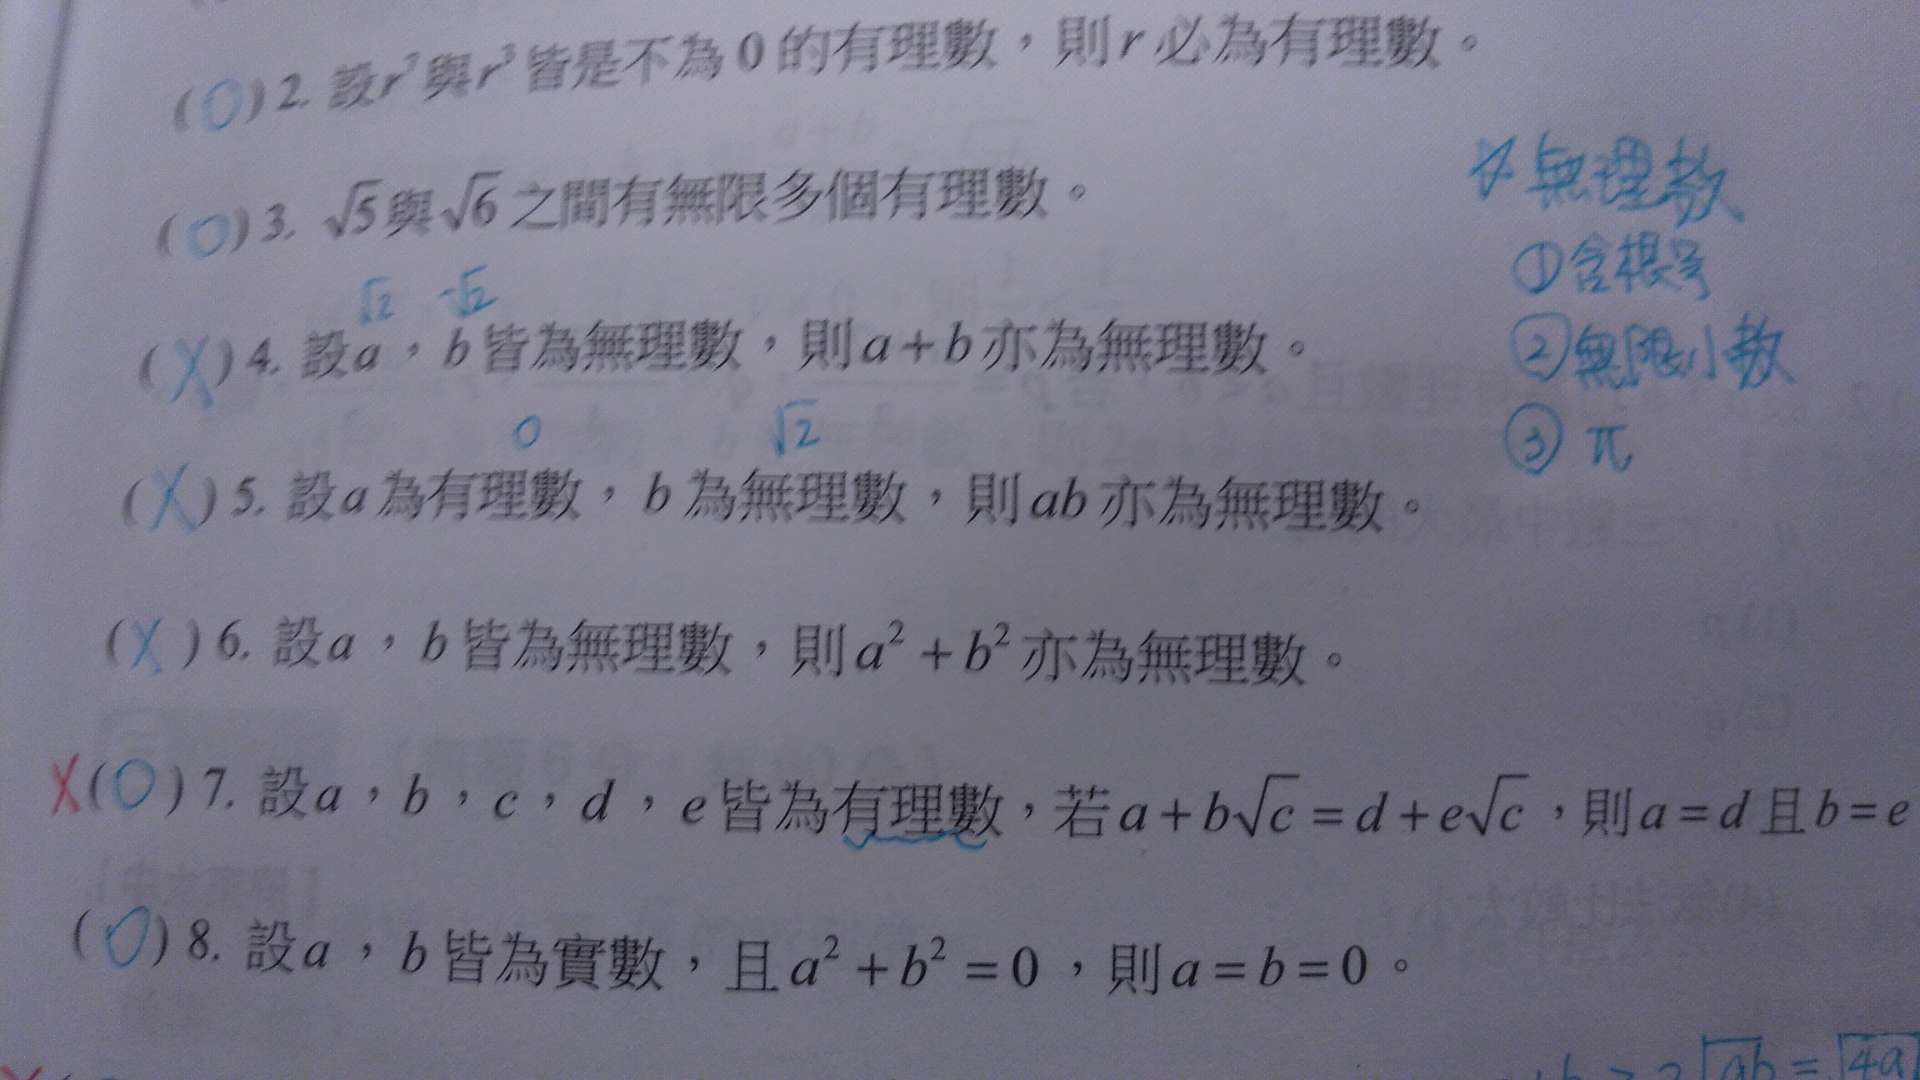 (O) 2. 設r²與r³皆是不為0的有理數，則r必為有理數。
(O) 3. √5與√6之間有無限多個有理數。
√2 -√2
(X) 4. 設a，b皆為無理數，則a+b亦為無理數。
0 √2
(X) 5. 設a為有理數，b為無理數，則ab亦為無理數。
(X) 6. 設a，b皆為無理數，則a²+b²亦為無理數。
X (O) 7. 設a，b，c，d，e皆為有理數，若a+b√c=d+e√c，則a=d且b=e
(O) 8. 設a，b皆為實數，且a²+b²=0，則a=b=0。
無理数
①含根号
②無限小数
③π